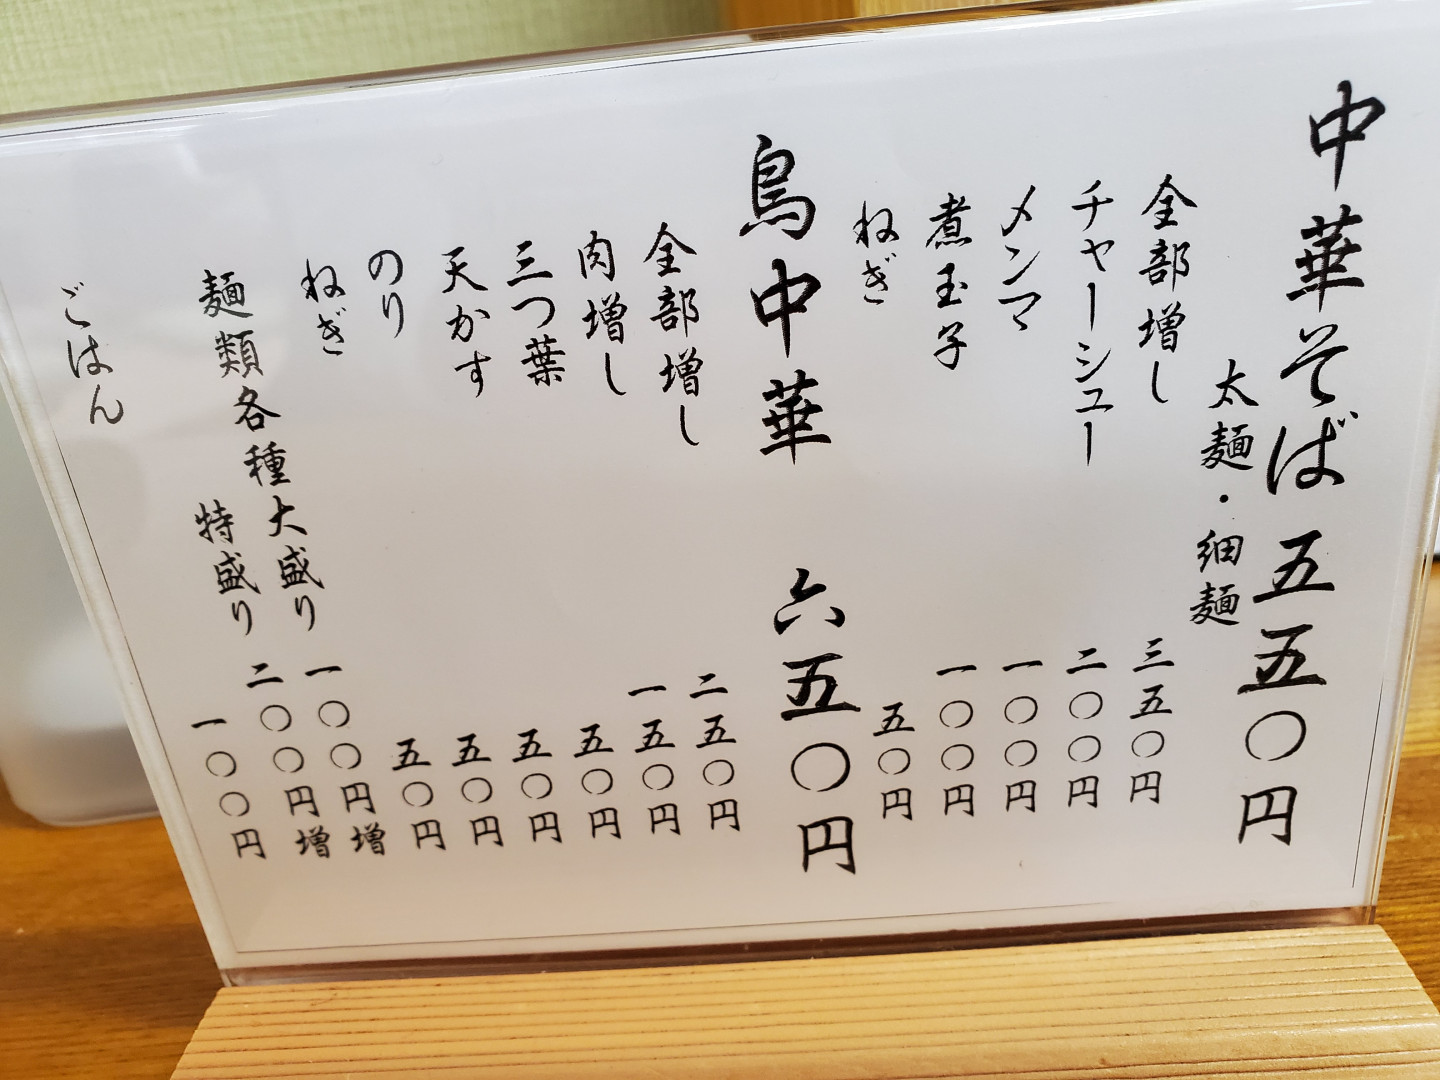 中華そば 五五〇円
太麺・細麺
全部増し 三五〇円
チャーシュー 二〇〇円
メンマ 一〇〇円
煮玉子 一〇〇円
ねぎ 五〇円
鳥中華 六五〇円
全部増し 二五〇円
肉増し 一五〇円
三つ葉 五〇円
天かす 五〇円
のり 五〇円
ねぎ 五〇円
麺類各種大盛り 一〇〇円増
特盛り 二〇〇円増
ごはん 一〇〇円